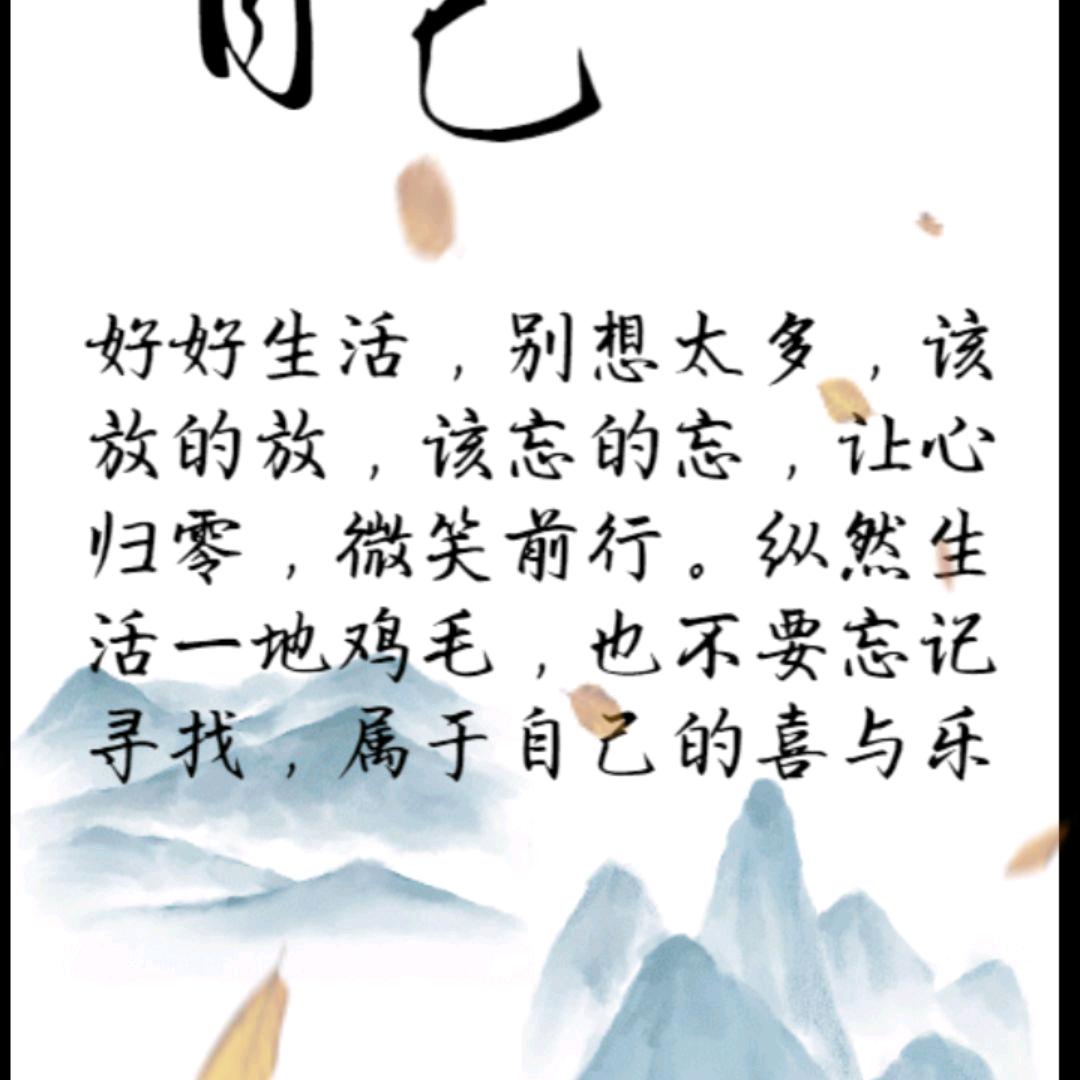 自己
好好生活，别想太多，该
放的放，该忘的忘，让心
归零，微笑前行。纵然生
活一地鸡毛，也不要忘记
寻找，属于自己的喜与乐